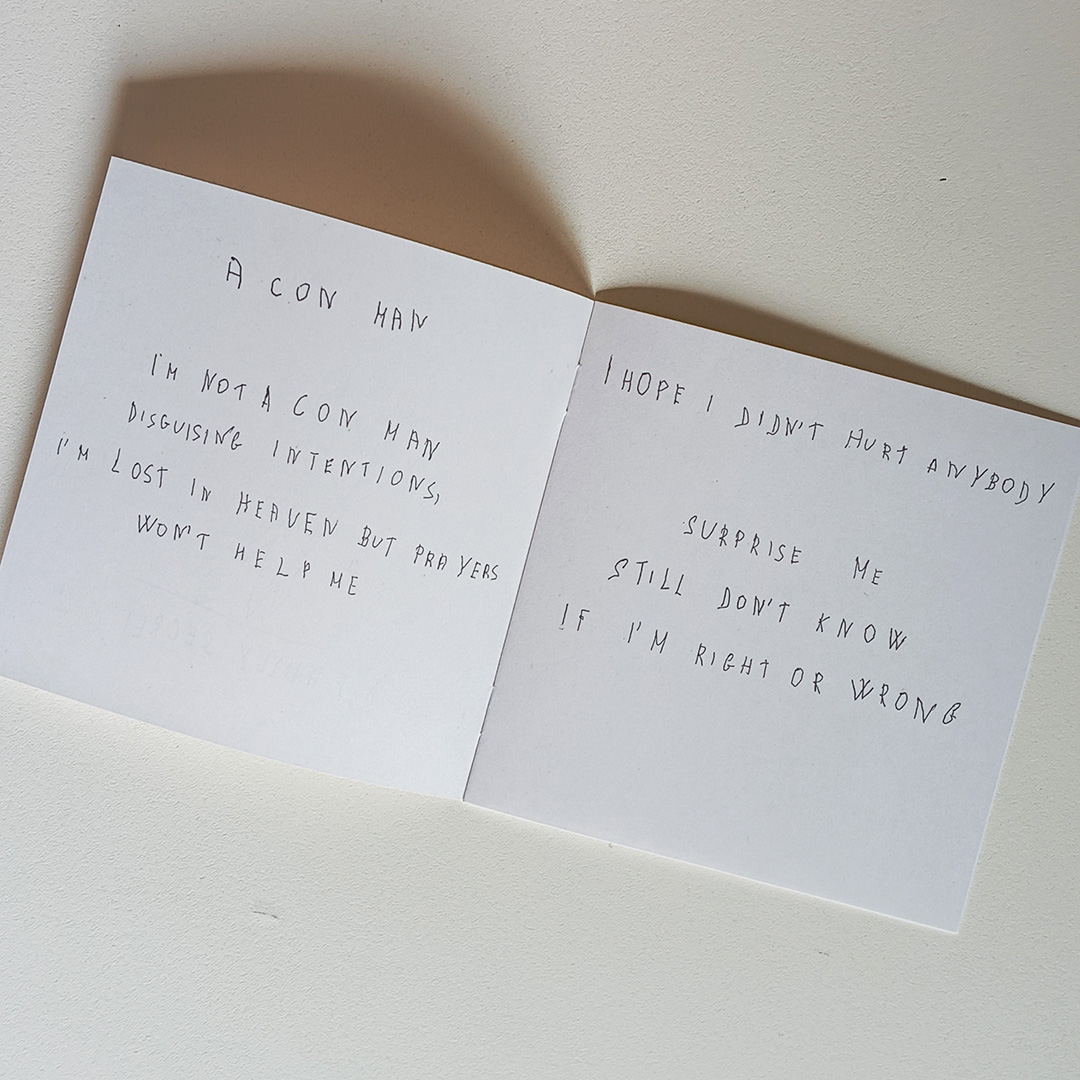 A CON MAN
I'M NOT A CON MAN
DISGUISING INTENTIONS,
I'M LOST IN HEAVEN BUT PRAYERS
WON'T HELP ME
I HOPE I DIDN'T HURT ANYBODY
SURPRISE ME
STILL DON'T KNOW
IF I'M RIGHT OR WRONG